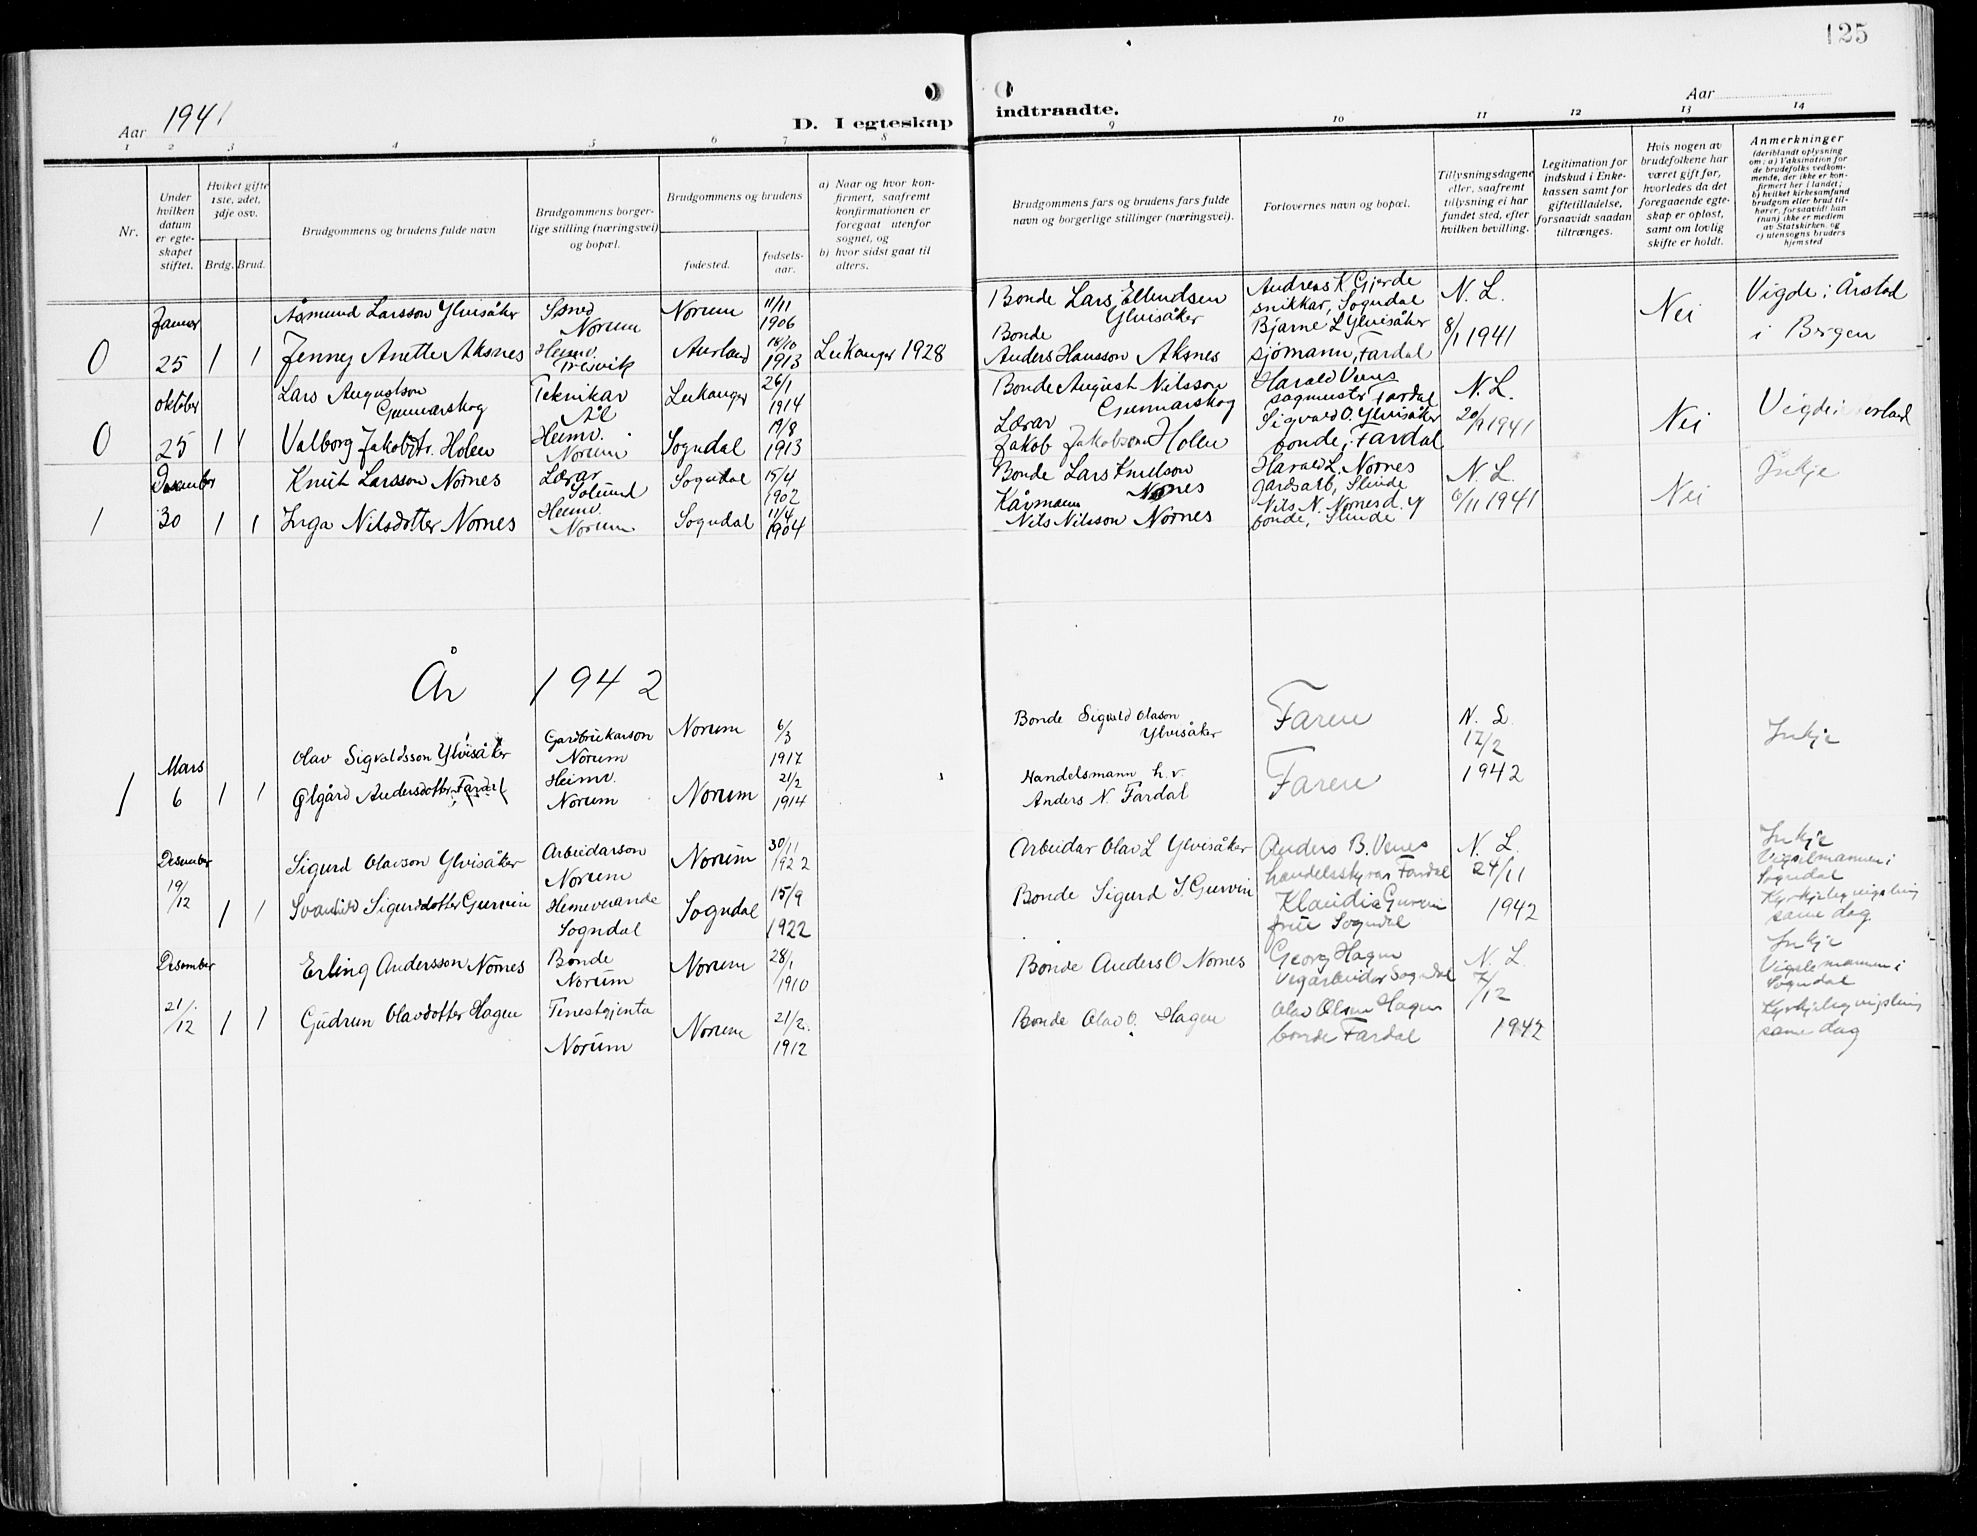 125
Aar 1941
D. I egteskap
indtraadte.
Aar
1 2 3 4 5 6 7 8
9 10 11 12 13 14
Nr.
Under hvilken datum er egte-skapet stiftet.
Hviket gifte 1ste, 2det, 3dje osv.
Brdg. Brud.
Brudgommens og brudens fulde navn
Brudgommens borger-lige stilling (næringsvei) og bopæl.
Brudgommens og brudens
fødested.
fødsels-aar.
a) Naar og hvor kon-firmert, saafremt konfirmationen er foregaat utenfor sognet, og
b) hvor sidst gaat til alters.
Brudgommens fars og brudens fars fulde navn og borgerlige stillinger (næringsvei).
Forlovernes navn og bopæl.
Tillysningsdagene eller, saafremt tillysning ei har fundet sted, efter hvilken bevilling.
Legitimation for indskud i Enke-kassen samt for giftetilladelse, forsaavidt saadan tiltrænges.
Hvis nogen av brudefolkene har været gift før, hvorledes da det foregaaende egte-skap er opløst, samt om lovlig skifte er holdt.
Anmerkninger
(deriblandt oplysning om: a) Vaksination for de brudefolks vedkom-mende, der ikke er kon-firmert her i landet; b) hvilket kirkesamfund brudgom eller brud til-hører, forsaavidt han (hun) ikke er medlem av Statskirken, og c) utensogns bruders hjemsted
Januar Åsmund Larsson Ylvisåker Smed Norum Norum 11/11 1906
0 25 1 1 Jenney Anette Aksnes Heimv. Fresvik Aurland 1913 Leikanger 1928
Bonde Lars Ellendsen Ylvisåker
Bonde Anders Hansson Aksnes
Andreas K. Gjerde snikkar, Sogndal
Bjarne L Ylvisåker sjømann, Fardal
N. L. 8/1 1941
Nei
Vigde i Årstad i Bergen
oktober Lars Augustson Gunnarskog Teknikar Ål Leikanger 26/1 1914
0 25 1 1 Valborg Jakobdtr. Holen Heimv. Norum Sogndal 19/8 1913
Bonde August Nilsson Gunnarskog
Lærar Jakob Jakobson Holen
Harald Venes sagmester Fardal
Sigvald O. Ylvisåker bonde, Fardal
N. L. 20/9 1941
Nei
Desember Knut Larsson Nornes Lærar Solund Sogndal 15/4 1902
1 30 1 1 Inga Nilsdotter Nornes Heimv. Norum Sogndal 11/4 1904
Bonde Lars Knutson Nornes
Kårmann Nils Nilsson Nornes
Harald L. Nornes gardsarb, Slinde
Nils N. Nornes d. y bonde, Slinde
N. L. 6/11 1941
Nei
Inkje
År 1942
Mars Olav Sigvaldsson Ylvisåker Gardbrukarson Norum Norum 6/3 1917
1 6 1 1 Ølgård Andersdotter Fardal Heimv. Norum Norum 21/2 1914
Bonde Sigvald Olason Ylvisåker
Handelsmann h. v. Anders N. Fardal
Faren
Faren
N. L. 17/2 1942
Inkje
Desember Sigurd Olavson Ylvisåker Arbeidarson Norum Norum 30/11 1922
19/12 1 1 Svanhild Sigurdsdotter Gurvin Heimeverande Sogndal Sogndal 15/9 1922
Arbeidar Olav L Ylvisåker
Bonde Sigurd S. Gurvin
Anders B. Venes handelsstyrar Fardal
Klaudia Gurvin frue Sogndal
N. L. 24/11 1942
Inkje
Vigslemannen i Sogndal
Kyrkjeleg vigsling same dag
Desember Erling Andersson Nornes Bonde Norum Norum 28/1 1910
21/12 1 1 Gudrun Olavdotter Hagen Tenestgjenta Norum Norum 21/2. 1912
Bonde Anders O Nornes
Bonde Olav O. Hagen
Georg Hagen Vegarbeidar Sogndal
Olav Olsen Hagen bonde Fardal
N. L. 7/12 1942
Inkje
Vigslemannen i Sogndal
Kyrkjeleg vigsling same dag